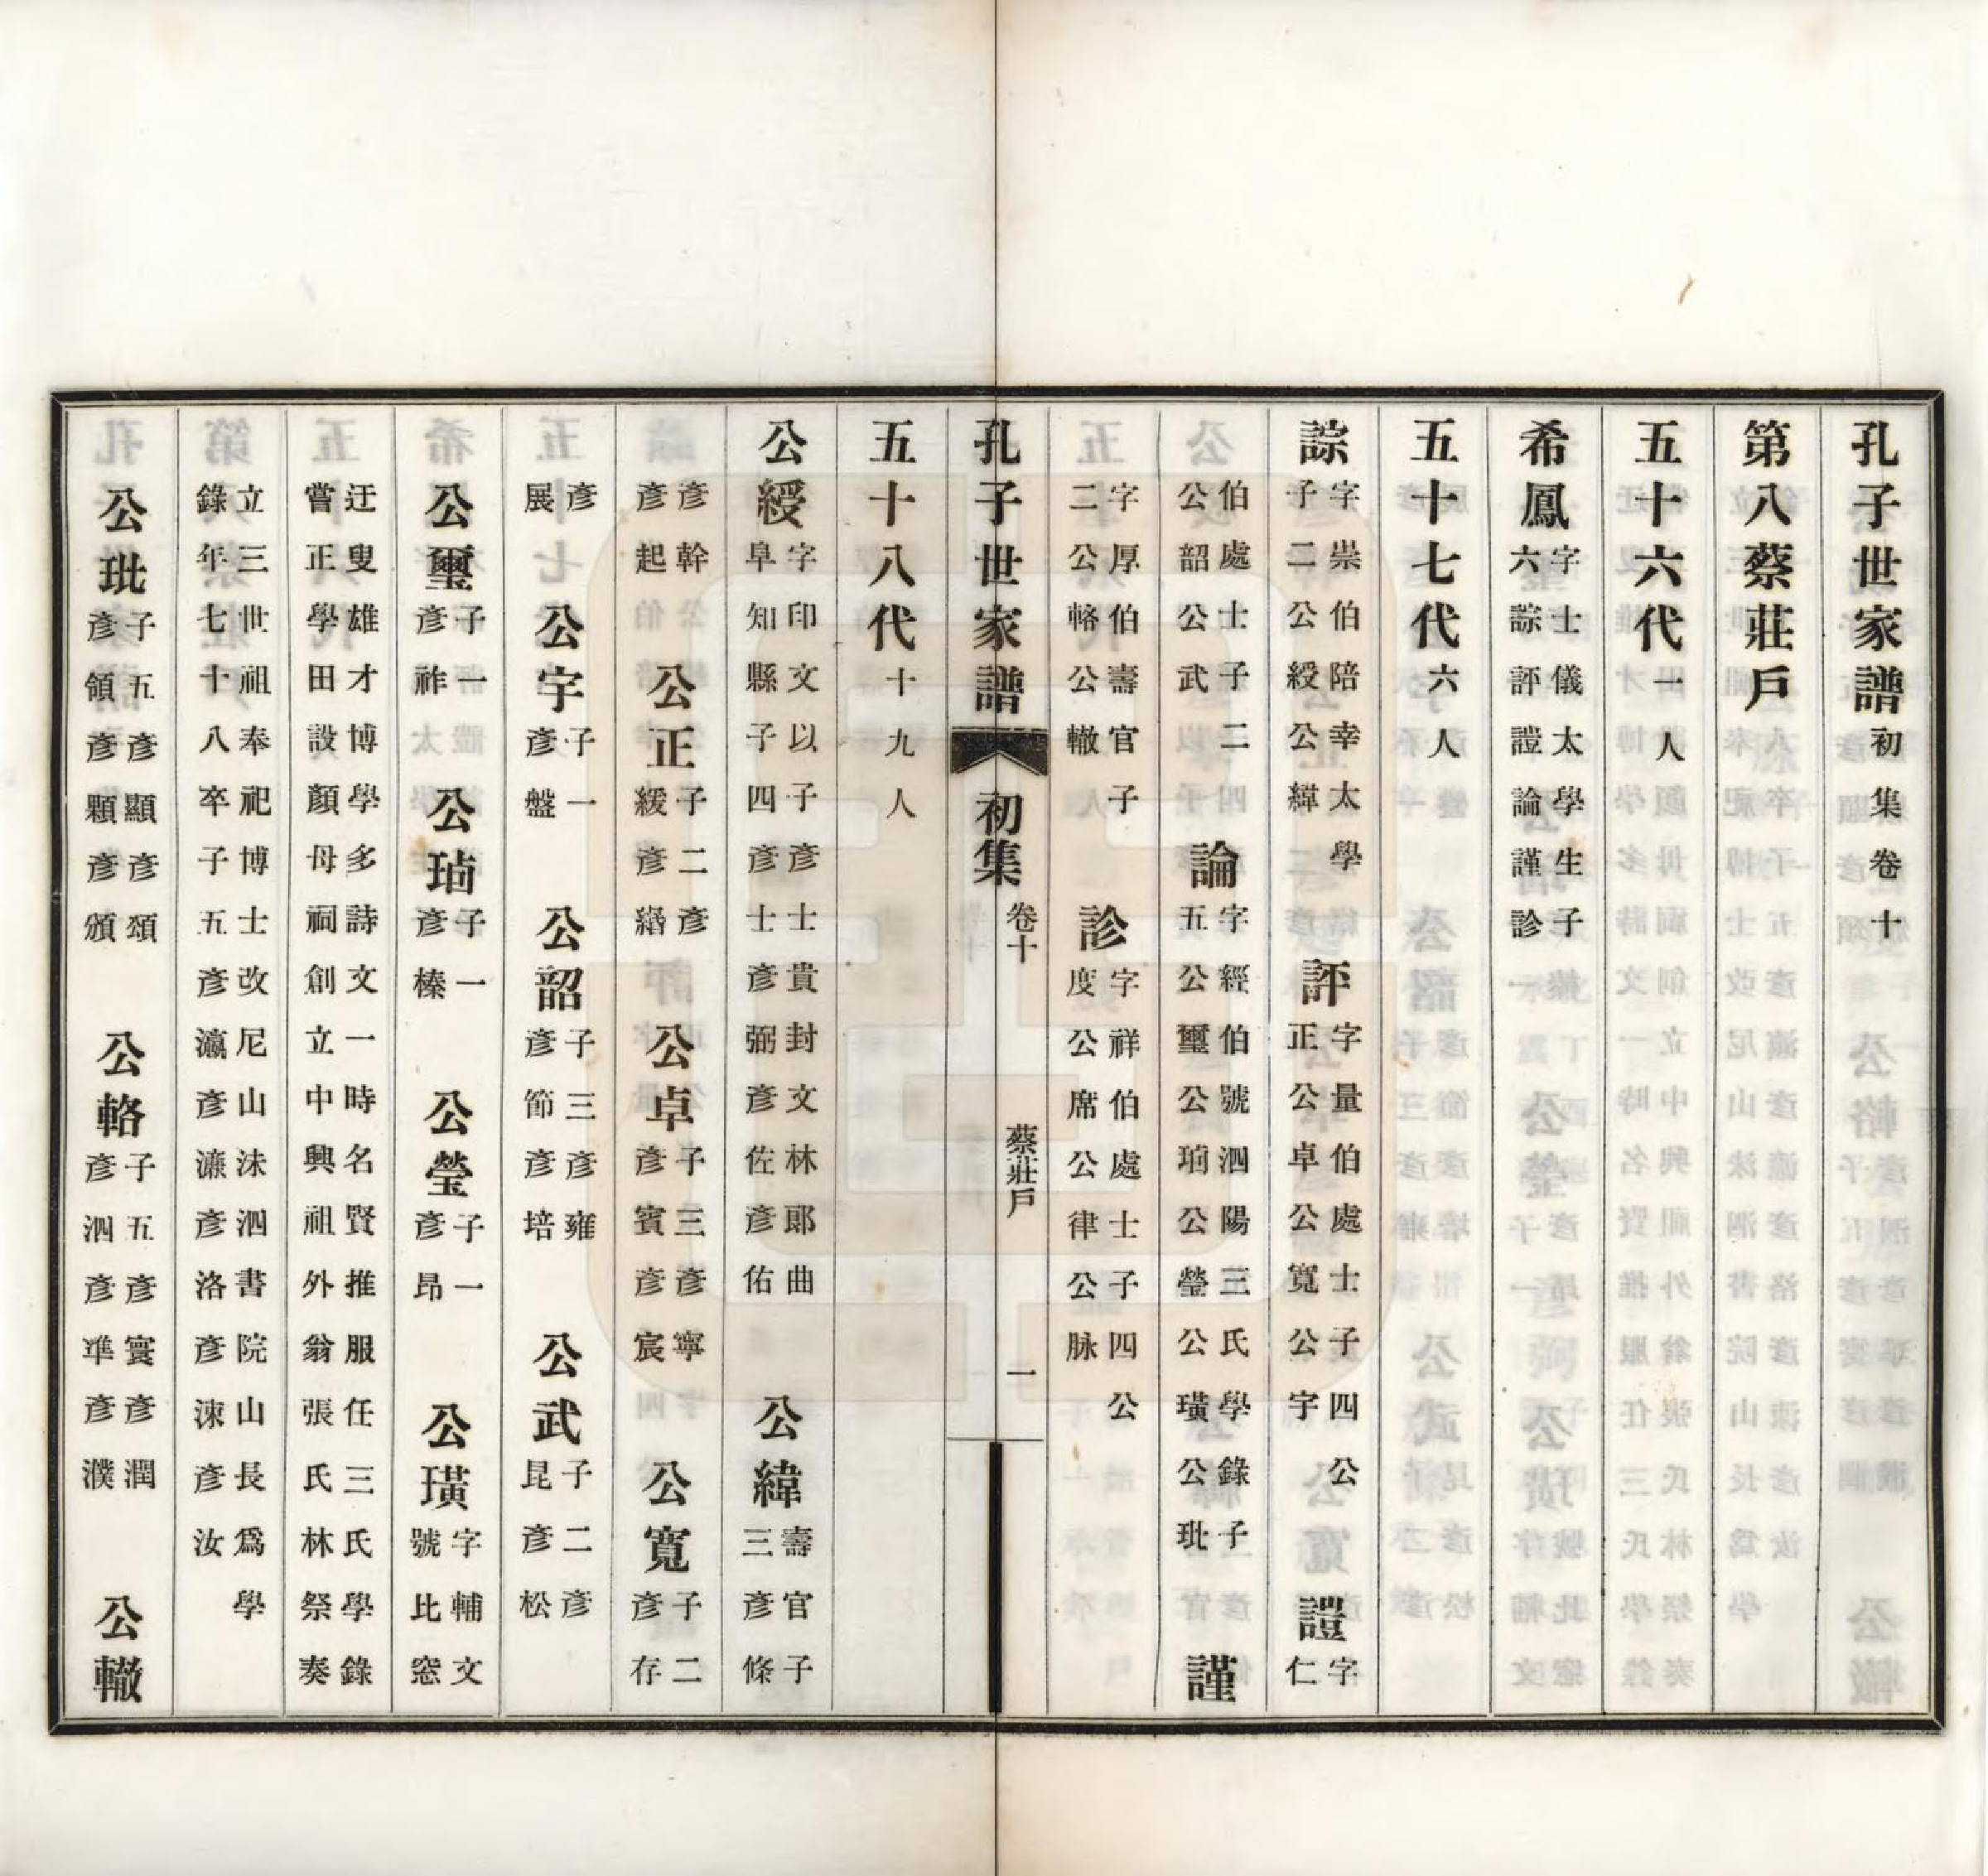 孔子世家譜初集卷十
第八蔡莊戶
五十六代一人
希鳳字士儀太學生子六諒評證論謹診
五十七代六人
諒字崇伯陪幸太學子二公綬公緯 評字量伯處士子四公正公卓公寬公宇 證字仁
伯處士子二公韶公武 論字經伯號泗陽三氏學錄子五公璽公瑱公瑩公璜公玭 謹
字厚伯壽官子二公輅公轍 診字祥伯處士子四公度公席公律公脉
孔子世家譜 初集 卷十 蔡莊戶 一
五十八代十九人
公綬字印文以子彥士貴封文林郎曲阜知縣子四彥士彥弼彥佐彥佑 公緯壽官子三彥條
彥幹彥起 公正子二彥緩彥緡 公卓子三彥寧彥賓彥宸 公寬子二彥存
彥展 公宇子一彥盤 公韶子三彥雍彥節彥培 公武子二彥昆彥松
公璽子一彥祚 公瑱子一彥榛 公瑩子一彥昂 公璜字輔文號比窓
迂叟雄才博學多詩文一時名賢推服任三氏學錄嘗正學田設顏母祠創立中興祖外翁張氏林祭奏
立三世祖奉祀博士改尼山洙泗書院山長爲學錄年七十八卒子五彥瀛彥濂彥洛彥涑彥汝
公玭子五彥顯彥頌彥領彥顆彥頒 公輅子五彥寰彥潤彥泗彥準彥濮 公轍